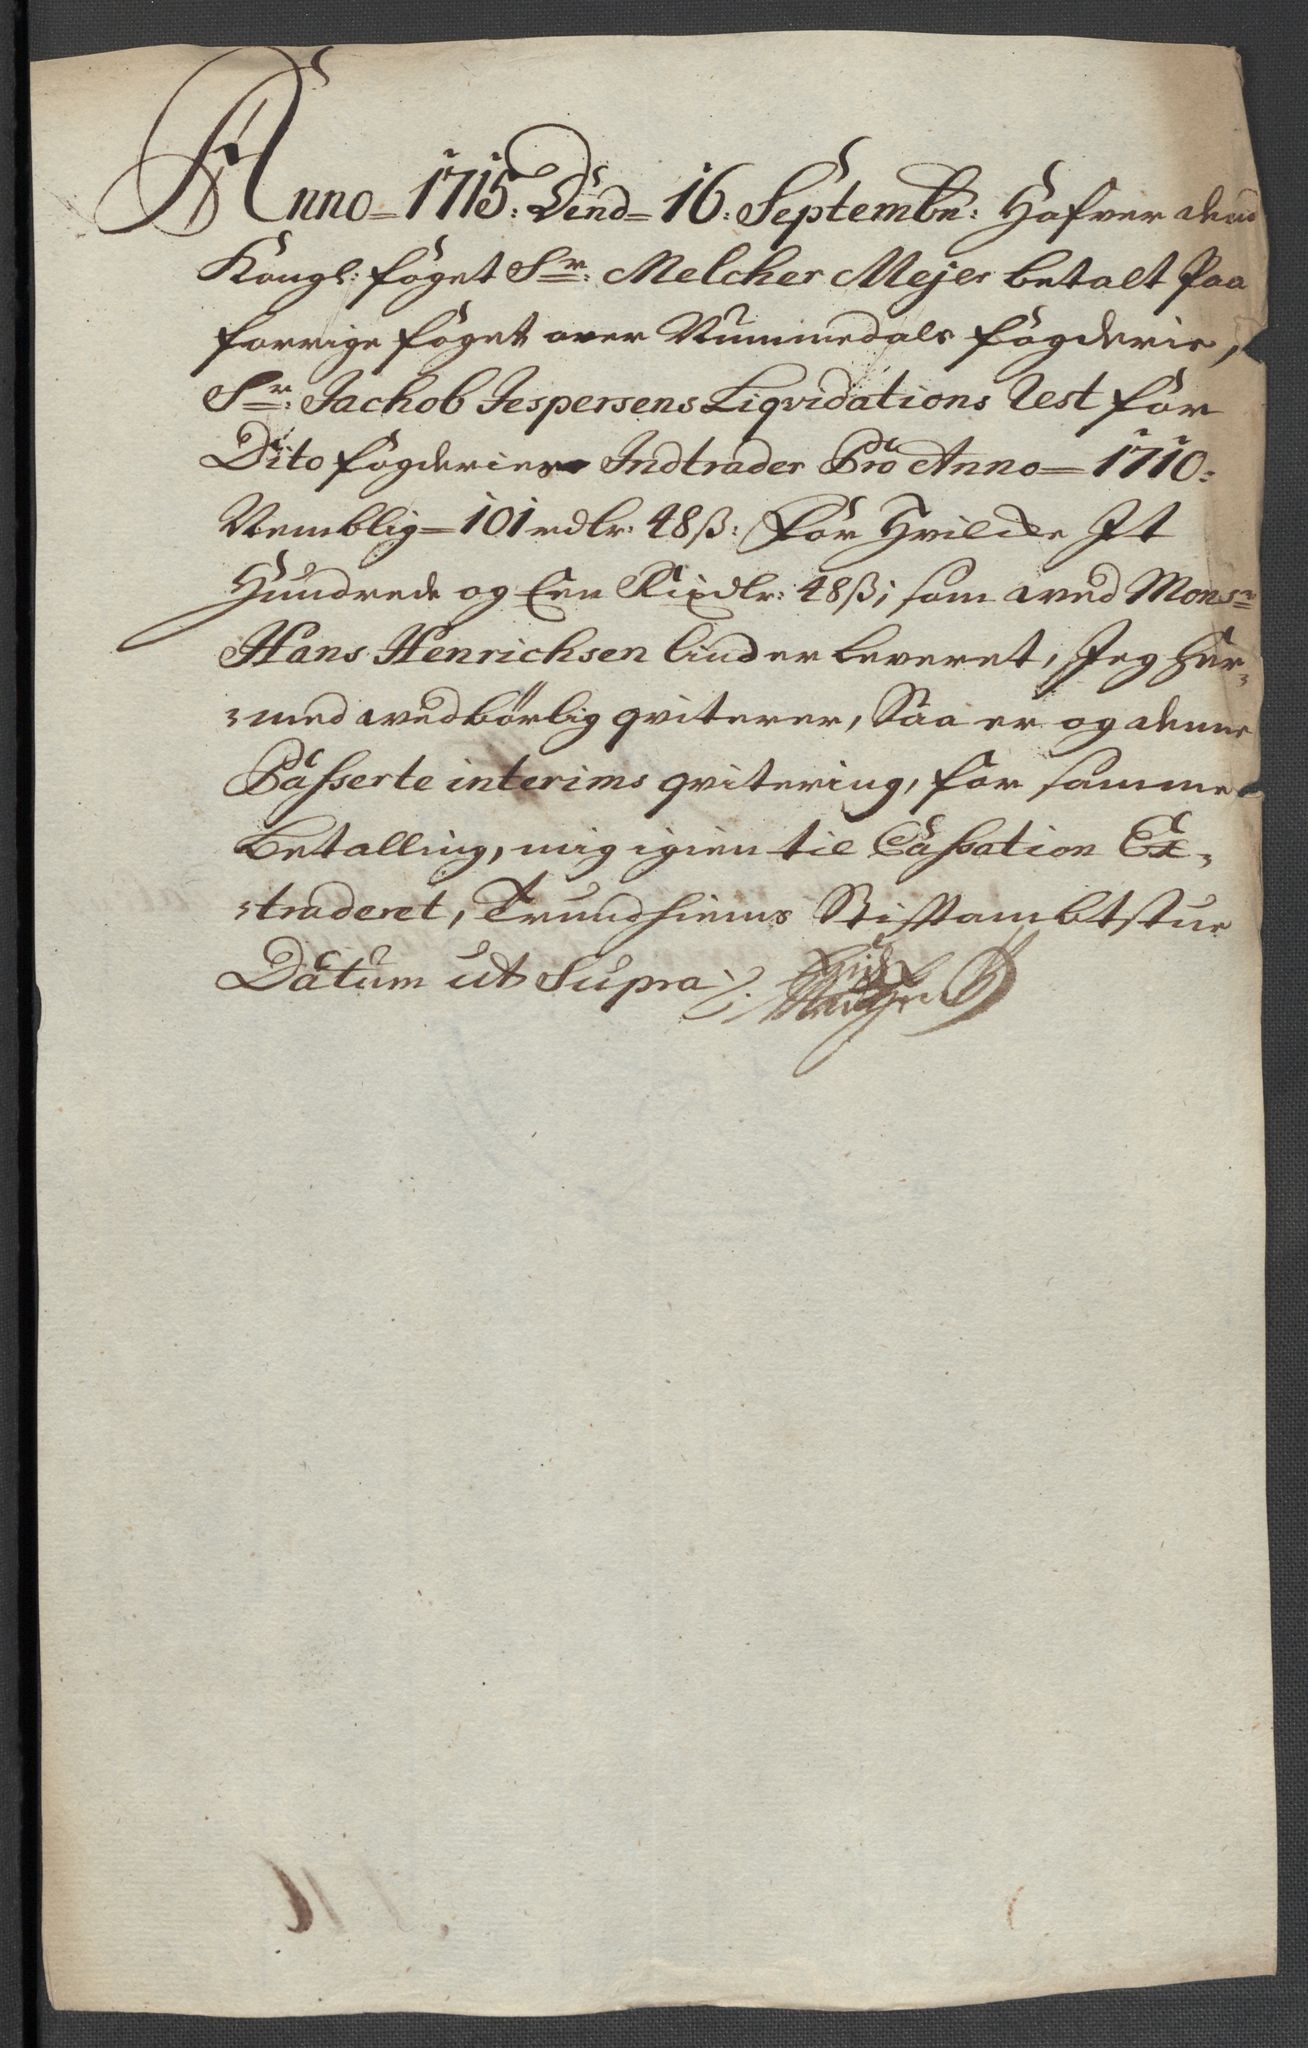 Anno = 1715: Dend = 16: Septembr: Hafver dend
Kongl: foget Sr: Melcher Mejer betalt Paa
forrige foget over Nummedals fogderie,
Sr: Jachob Jespersens Liqvidations Rest for
Dito fogderies Indtrader Pro Anno = 1710:
Nemblig = 101 rdlr: 48 ß: for Hvilcke It
Hundrede og Een Rixdlr: 48 ß; som ved Monsr
Hans Henrichsen er leveret, Jeg her-
-med vedbörlig qviterer, Saa er og denne
Passerte interims qvitering, for samme
betalling, mig igien til Cassation Ex-
-traderet, Trundhiems Stiftambtstue
Datum ut Supra